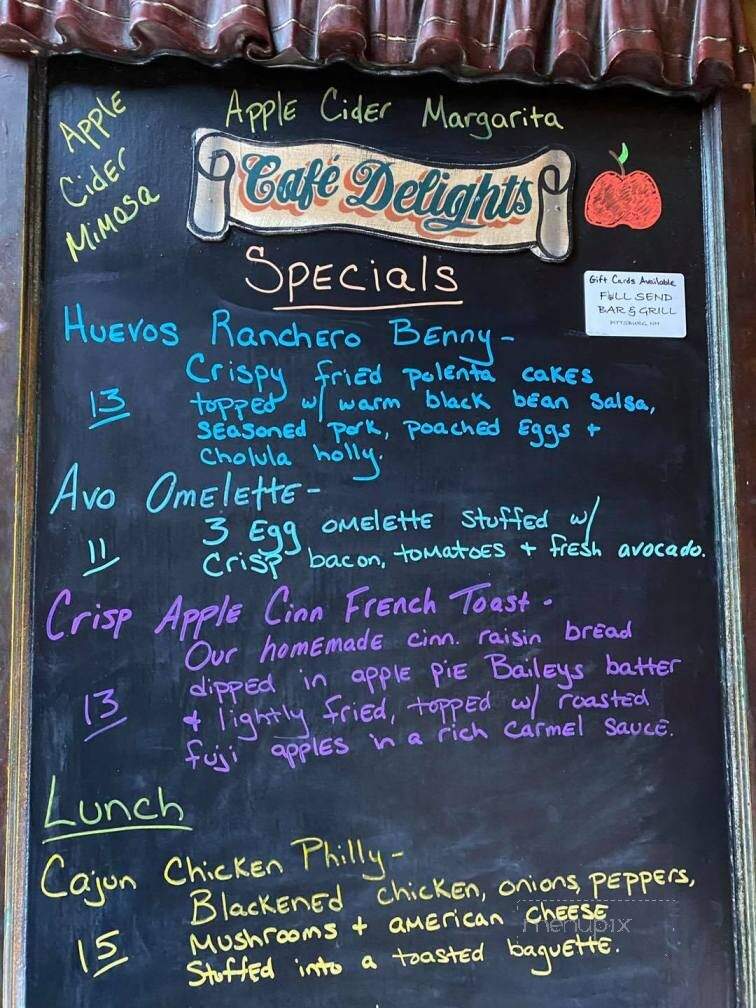 Apple Cider Margarita
Apple
Cider
Mimosa
Café Delights
Specials
Gift Cards Available
FULL SEND
BAR & GRILL
PITTSBURG, NH
Huevos Ranchero Benny-
Crispy fried polenta cakes
13
topped w/ warm black bean salsa,
seasoned pork, poached Eggs +
Cholula holly.
Avo Omelette-
3 Egg omelette stuffed w/
11
Crisp bacon, tomatoes + fresh avocado.
Crisp Apple Cinn French Toast-
Our homemade cinn. raisin bread
13
dipped in apple pie Baileys batter
+ lightly fried, topped w/ roasted
fuji apples in a rich carmel sauce.
Lunch
Cajun Chicken Philly-
Blackened chicken, onions, peppers,
15
Mushrooms + american cheese
Stuffed into a toasted baguette.
menupix